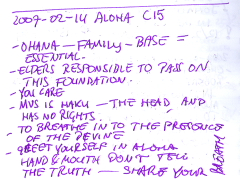 2007-02-14 ALOHA C15
- OHANA — FAMILY - BASE =
ESSENTIAL.
- ELDERS RESPONSIBLE TO PASS ON
THIS FOUNDATION.
- YOU CARE
- MVS IS HAKU — THE HEAD AND
HAS NO RIGHTS.
- TO BREATHE IN TO THE PRESENCE
OF THE DEVINE
- GREET YOURSELF IN ALOHA
HAND & MOUTH DON'T TELL
THE TRUTH — SHARE YOUR
BREATH